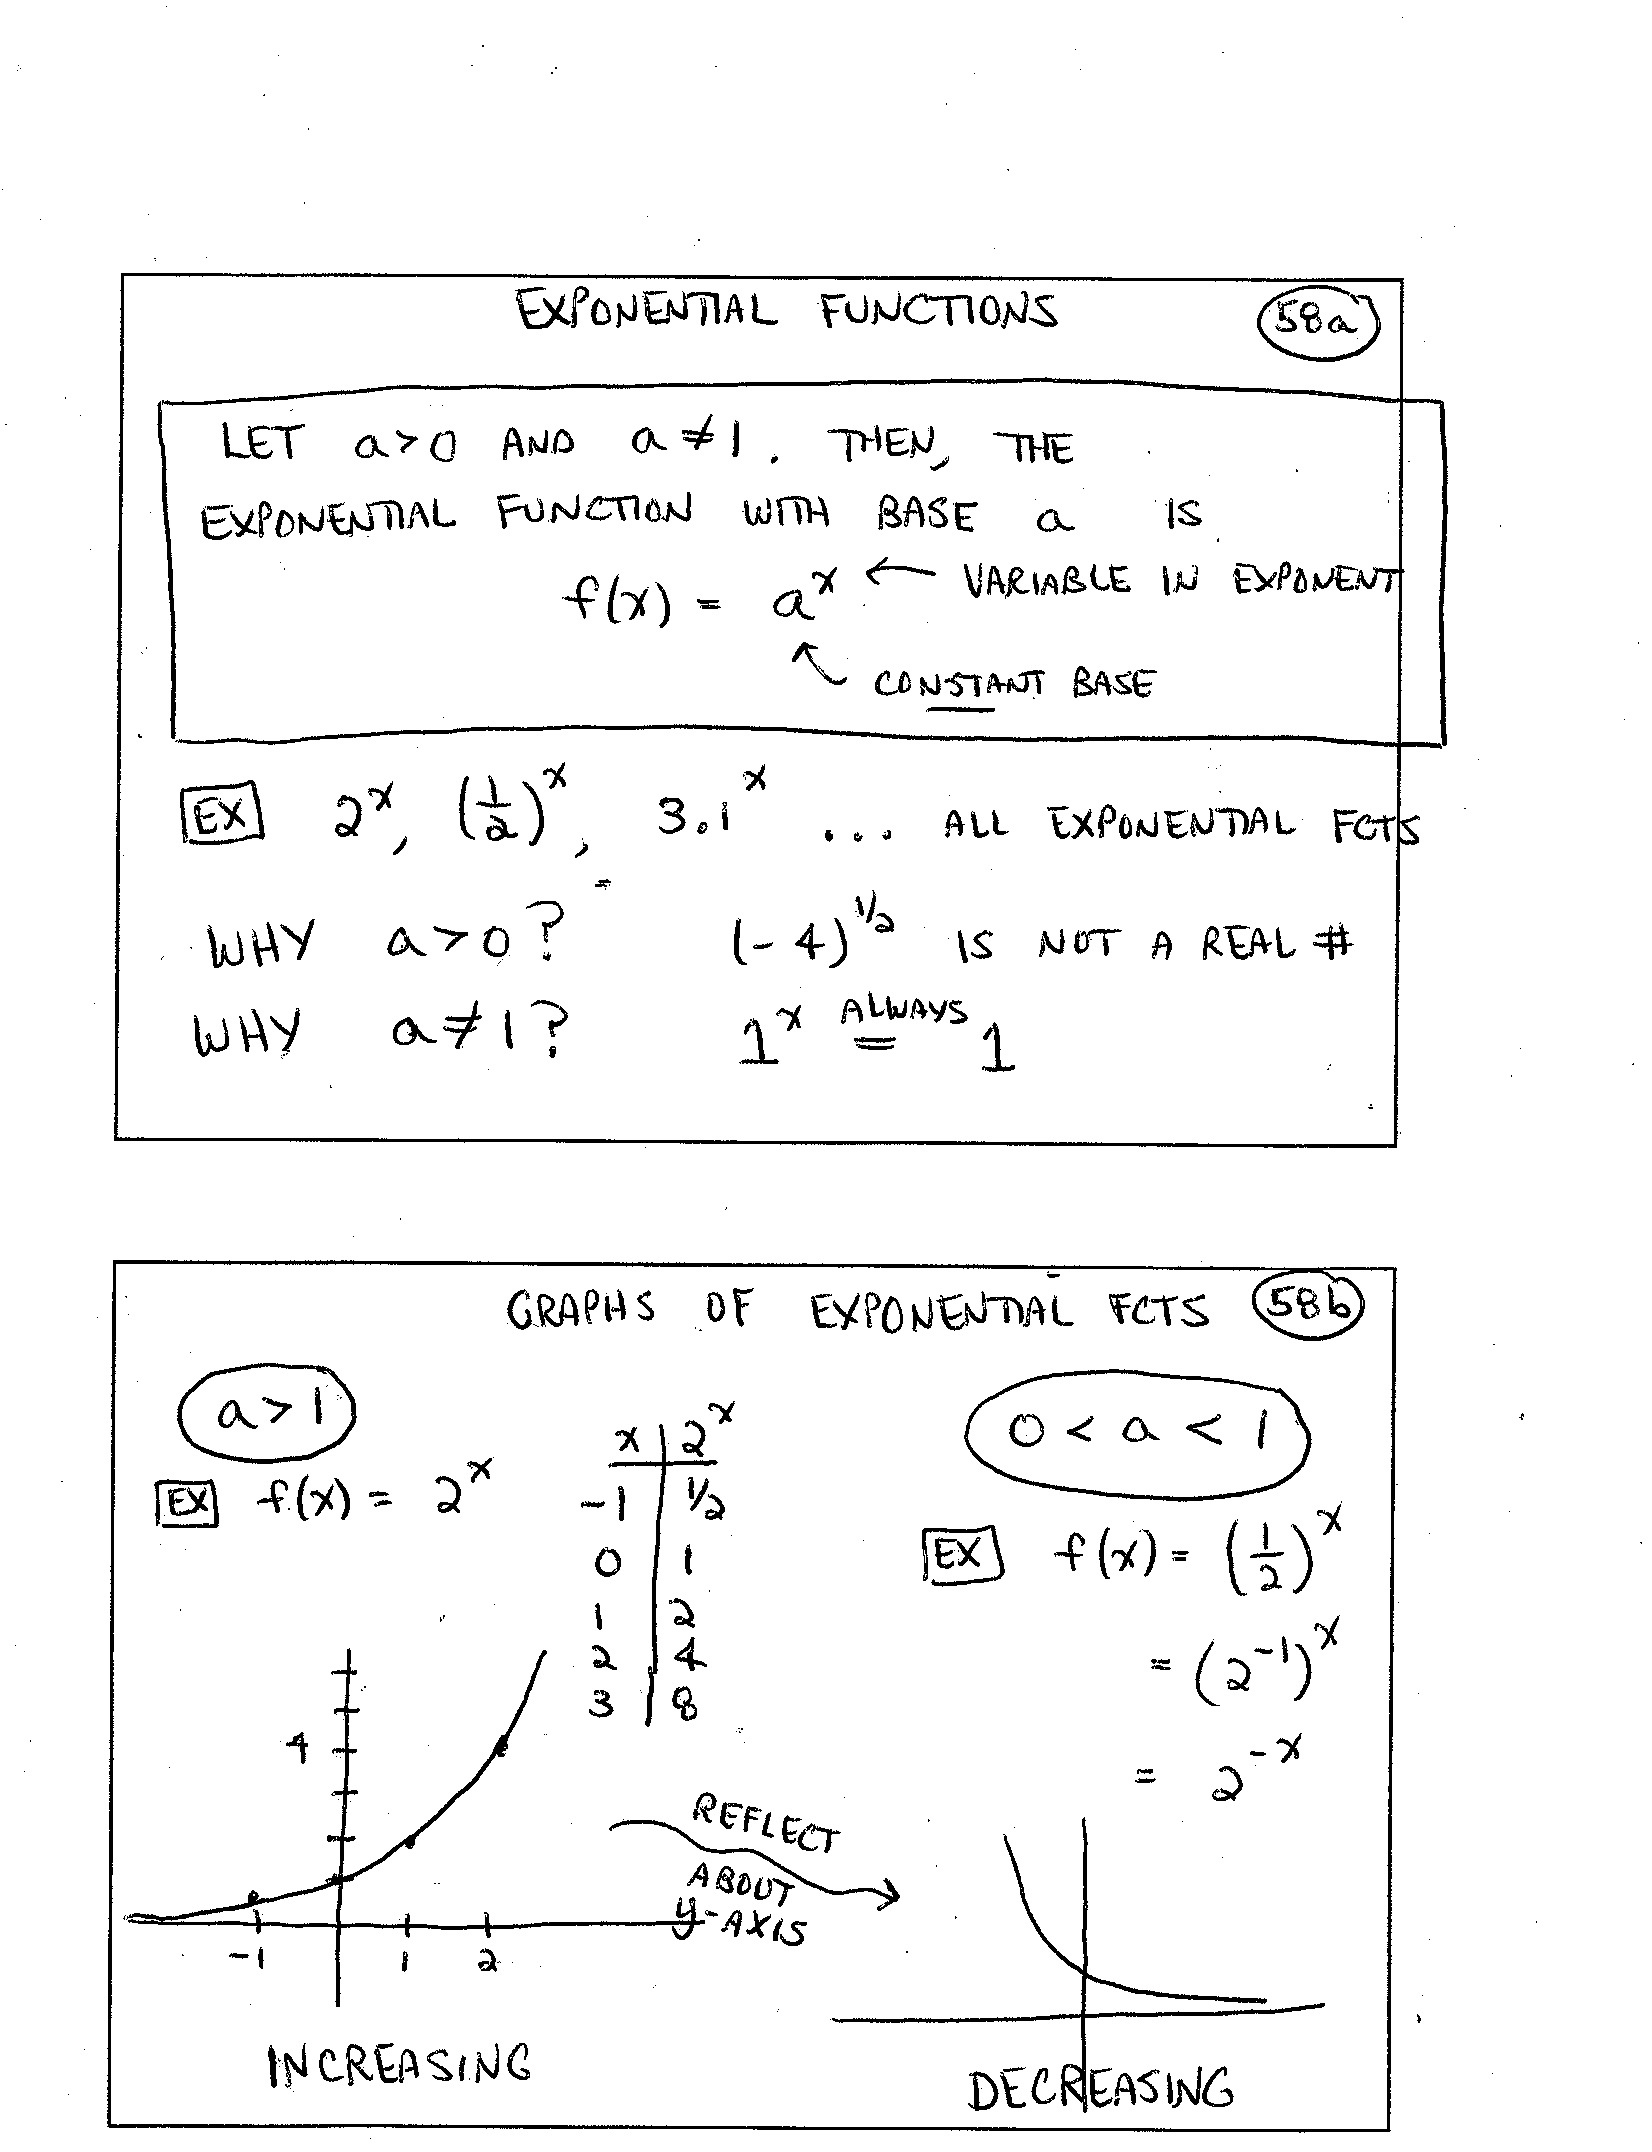 EXPONENTIAL FUNCTIONS 58a
LET a>0 AND a≠1. THEN, THE
EXPONENTIAL FUNCTION WITH BASE a IS
f(x) = a^x ← VARIABLE IN EXPONENT
CONSTANT BASE
EX 2^x, (1/2)^x, 3.1^x ... ALL EXPONENTIAL FCTS
WHY a>0? (-4)^1/2 IS NOT A REAL #
WHY a≠1? 1^x ALWAYS = 1
GRAPHS OF EXPONENTIAL FCTS 58b
a>1
EX f(x) = 2^x
x | 2^x
-1 | 1/2
0 | 1
1 | 2
2 | 4
3 | 8
4
-1 1 2
INCREASING
REFLECT
ABOUT
y-AXIS
0 < a < 1
EX f(x) = (1/2)^x
= (2^-1)^x
= 2^-x
DECREASING